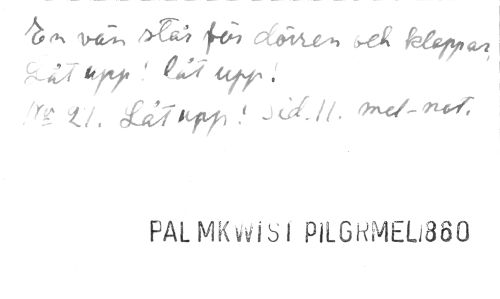 En vän står för dörren och klappar,
Låt upp! låt upp!
No 21. Låt upp! sid. 11. mel-not.
PALMKWIST PILGRMEL1860